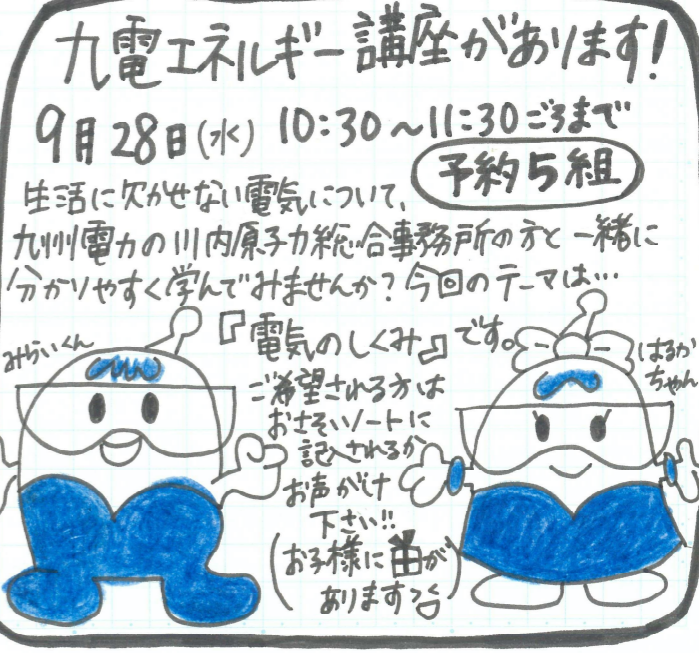 九電エネルギー講座があります!
9月28日(水) 10:30〜11:30ごろまで
予約5組
生活に欠かせない電気について、
九州電力の川内原子力総合事務所の方と一緒に
分かりやすく学んでみませんか?今回のテーマは…
『電気のしくみ』です。
みらいくん
はるか
ちゃん
ご希望される方は
おさそいノートに
記入されるか
お声がけ
下さい!!
(お子様に が
あります)